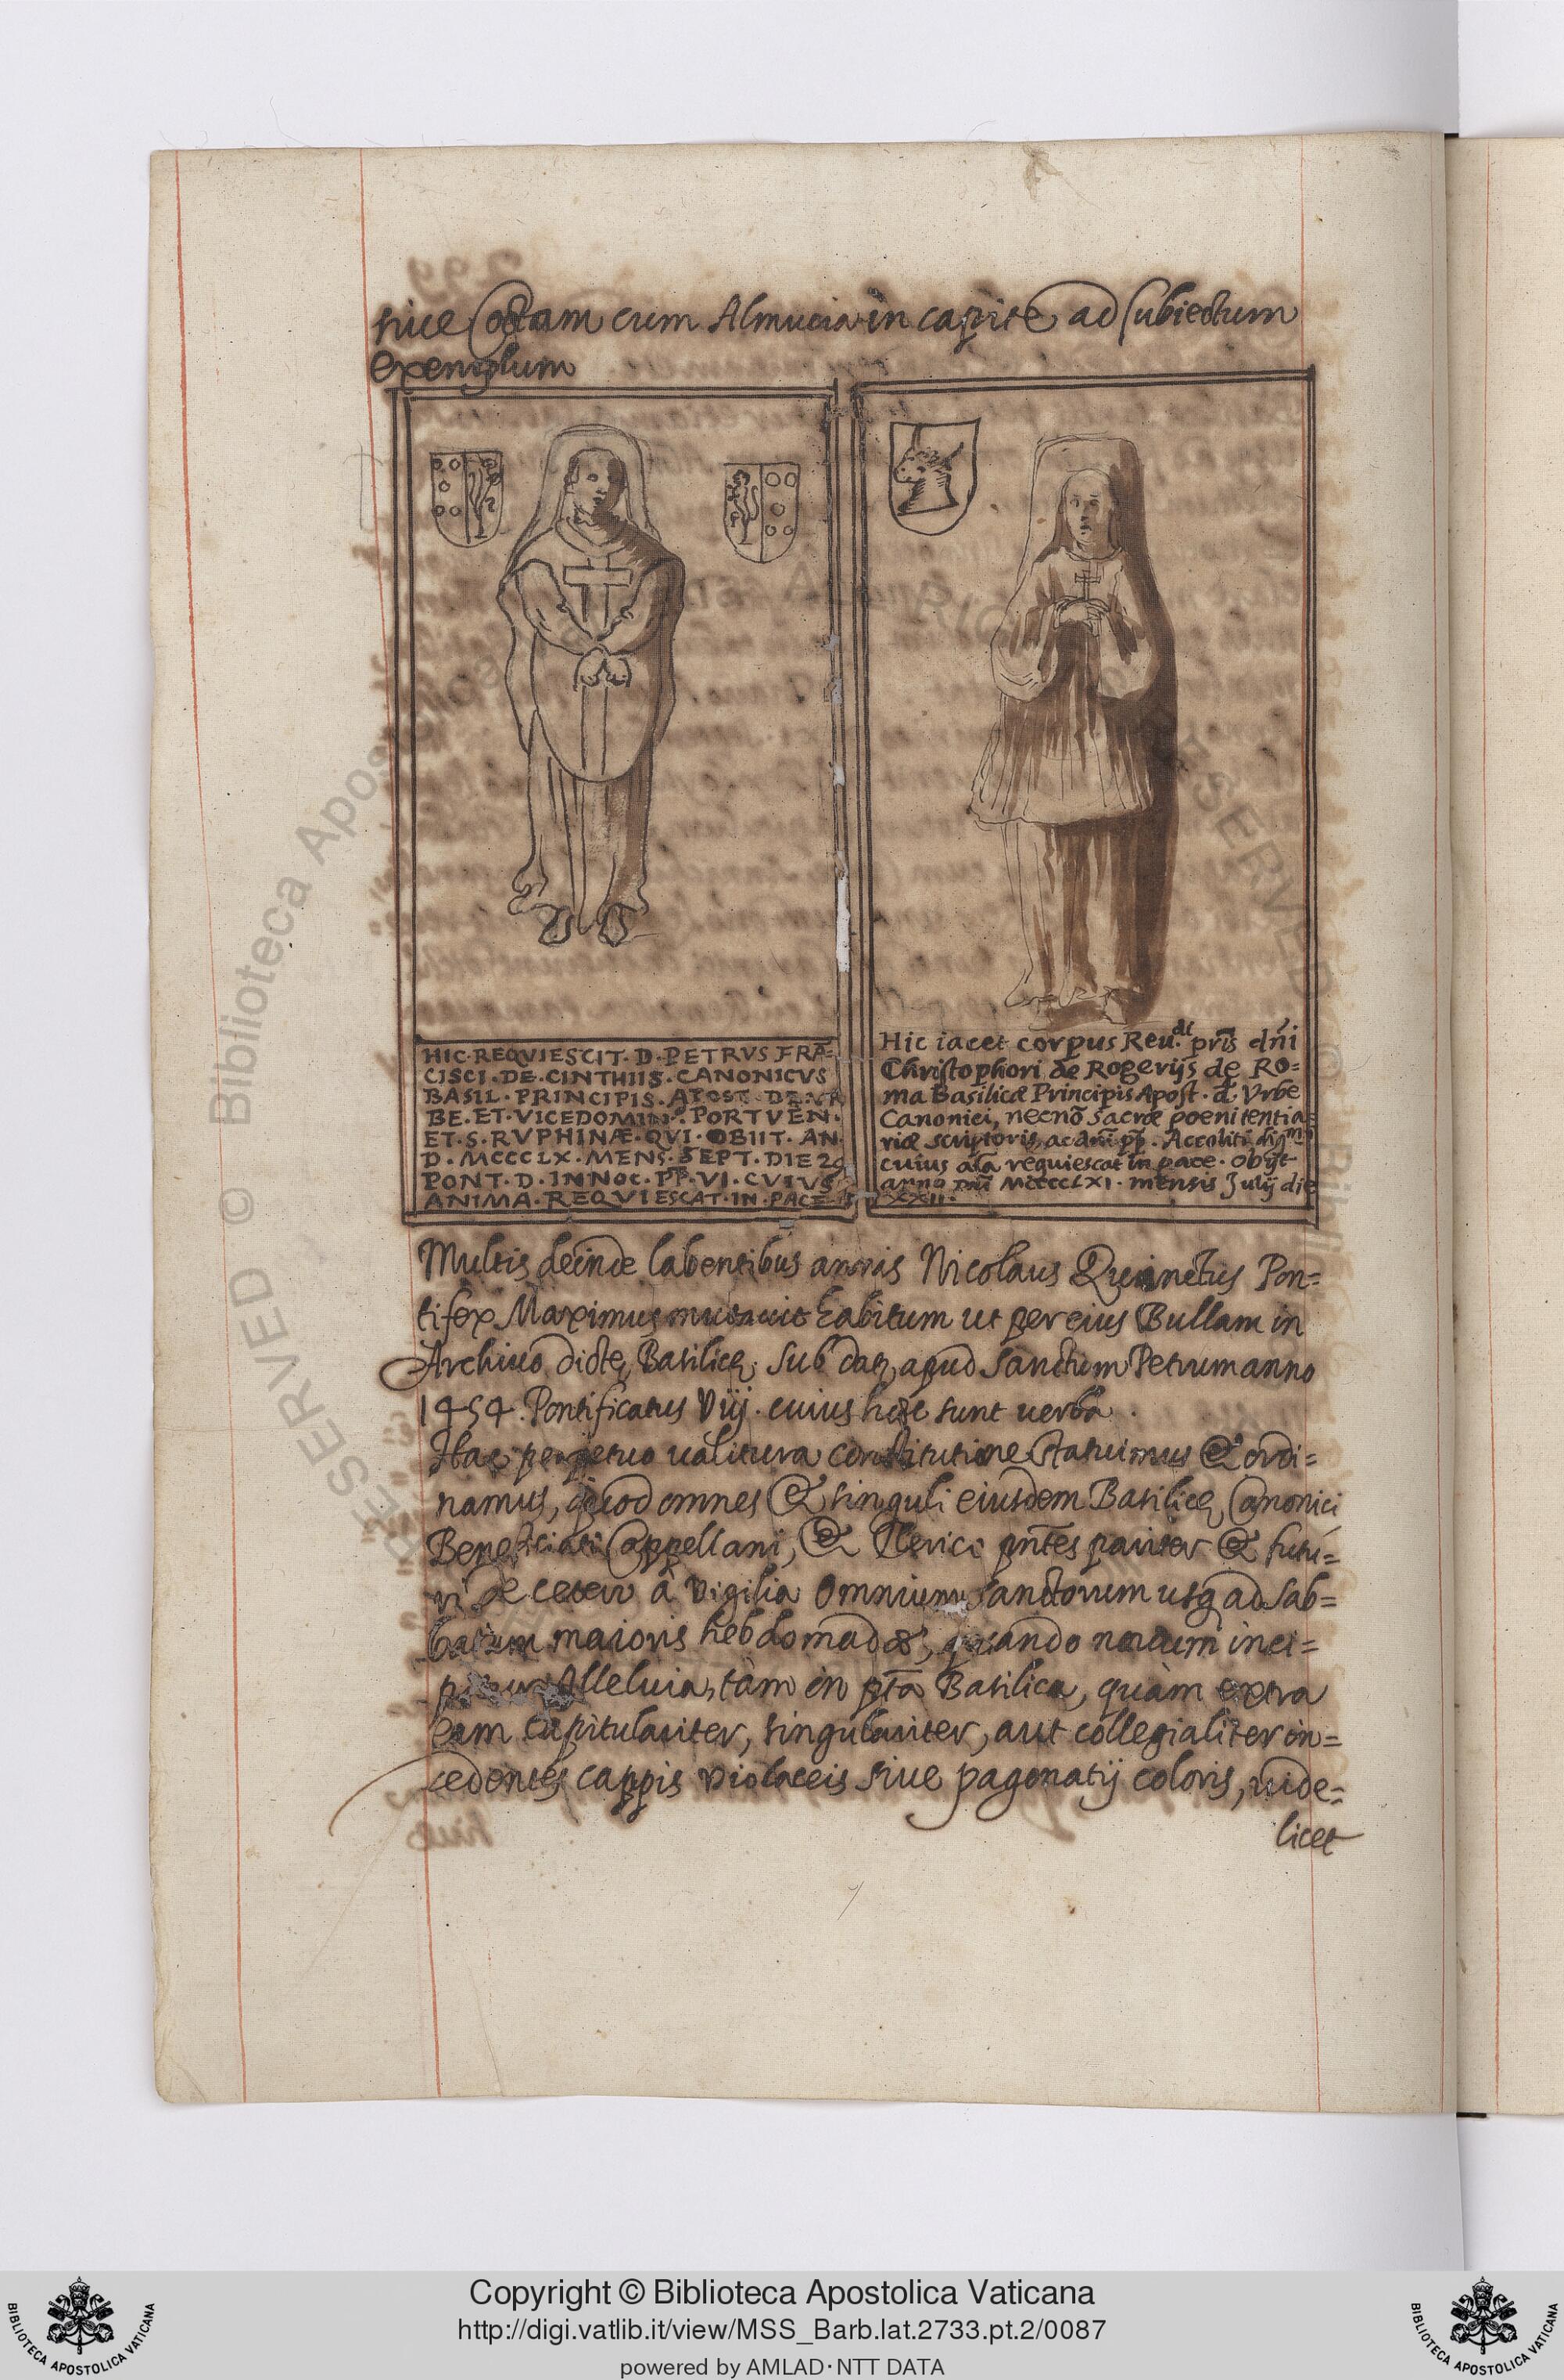 siue Cottam cum Almucia in capite ad subiectum
exemplum
HIC·REQVIESCIT·D·PETRVS FRĀ=
CISCI·DE·CINTHIIS·CANONICVS
BASIL·PRINCIPIS·APOST·DE VR
BE·ET·VICEDOMIN9·PORTVEN·
ET·S·RVPHINÆ·QVI·OBIIT·AN·
D·MCCCLX·MENS·SEPT·DIE 29
PONT·D·INNOC·PP·VI·CVIVS
ANIMA·REQVIESCAT·IN·PACE
Hic iacet corpus Reu.di pris dñi
Christophori de Rogerijs de Ro=
ma Basilicæ Principis Apost. d Vrbe
Canonici, necnõ Sacræ poenitentia=
riæ scriptoris, ac dñi pp. Accoliti
cuius aĩa requiescat in pace. Obijt
anno Dñi MCCCCLXI. mensis Julij die
XXII.
Multis deinde labentibus annis Nicolaus Quinctus Pon=
tifex Maximus mutauit habitum ut per eius Bullam in
Archiuo dictę Basilicę sub dat apud Sanctum Petrum anno
1454. Pontificatus Viij. cuius hæc sunt uerba.
Hac perpetuo ualitura constitutione statuimus & ordi=
namus, quod omnes & singuli eiusdem Basilicę Canonici
Beneficiati Cappellani, & Clerici pñtes pariter & futu=
ri de cetero à Vigilia Omnium sanctorum usq ad Sab=
batum maioris hebdomadæ, quando nouum inci=
pitur Alleluia, tàm in pta Basilica, quàm extra
eam capitulariter, singulariter, aut collegialiter in=
cedentes cappis violaceis siue pagonatij coloris, uide=
licet
RESERVED © Biblioteca Apos
Copyright © Biblioteca Apostolica Vaticana
http://digi.vatlib.it/view/MSS_Barb.lat.2733.pt.2/0087
powered by AMLAD·NTT DATA
BIBLIOTECA APOSTOLICA VATICANA
BIBLIOTECA APOSTOLICA VATICANA